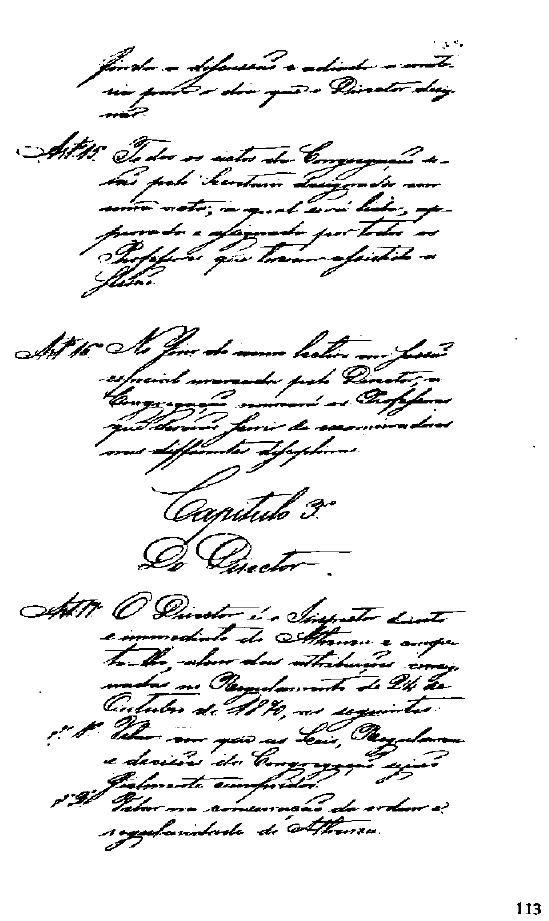 a discussão e adiada a mate-
ria para o dia que o Director desig-
nar.
Artº 15. Todos os actos da Congregação se-
rão pelo Secretario em
uma acta, a qual será lida, ap-
provada e assignada por todos os
Professores que assistido a
Sessão.
Artº 16º No fim do anno lectivo em sessão
especial marcada pelo Director, a
Congregação nomeará os Professores
que deverão servir de examinadores
nas differentes disciplinas.
Capitulo 3º
Do Director
Artº 17 O Director é o Inspector
e immediato do Atheneu e compe-
te-lhe, alem das attribuições consig-
nadas no Regulamento de 24 de
Outubro de 1870, as seguintes:
§ 1º Velar em que as Leis, Regulamen
e decisões da Congregação sejão
fielmente cumpridas.
§ 2º Velar na conservação da ordem e
regularidade do Atheneu.
113